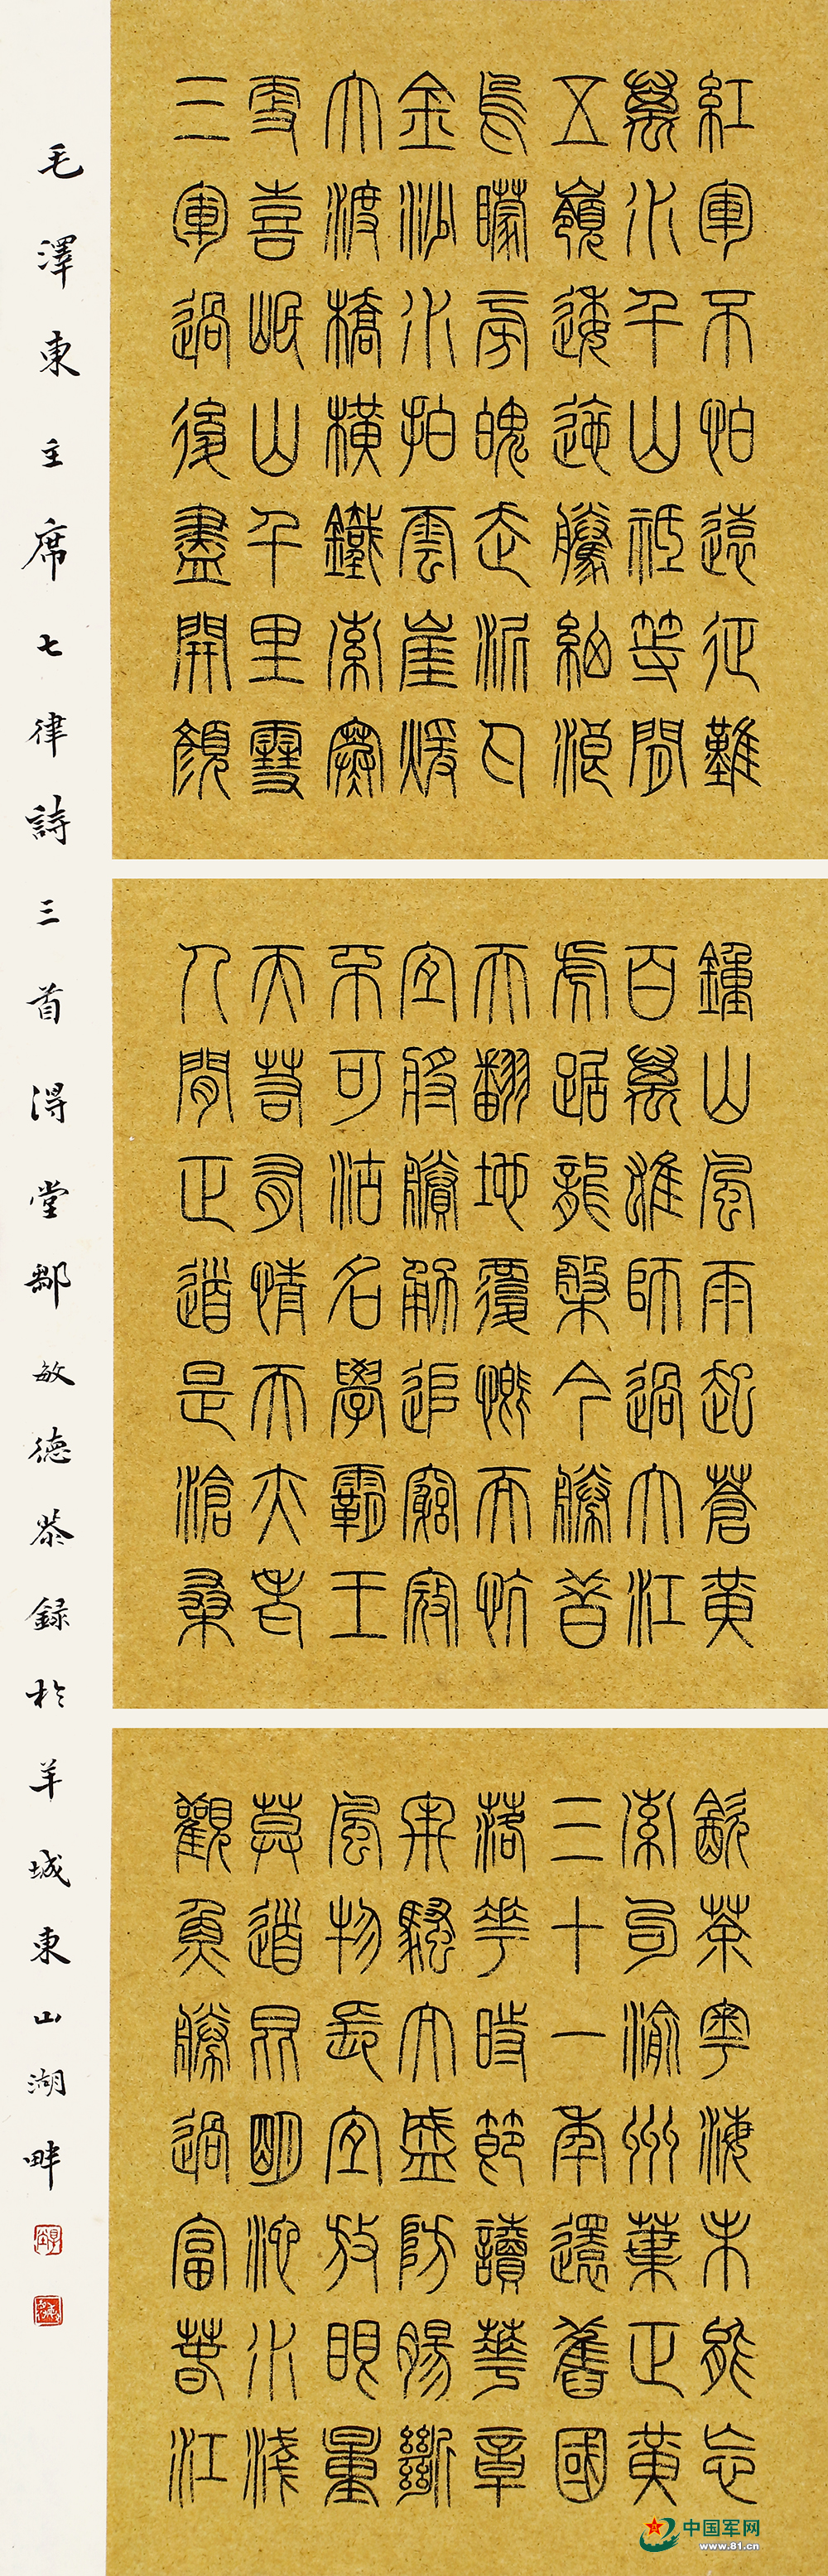 紅軍不怕遠征難
萬水千山祇等閒
五嶺逶迤騰細浪
烏矇旁魄走泥丸
金沙水拍雲崖煖
大渡橋橫鐵索寒
更喜岷山千里雪
三軍過後盡開顏
鍾山風雨起蒼黃
百萬雄師過大江
虎踞龍盤今勝昔
天翻地覆慨而慷
宜將賸勇追窮寇
不可沽名學霸王
天若有情天亦老
人閒正道是滄桑
飲茶粵海未能忘
索句渝州葉正黃
三十一年還舊國
落花時節讀華章
牢騷太盛防腸斷
風物長宜放眼量
莫道昆明池水淺
觀魚勝過富春江
毛澤東主席七律詩三首得堂鄒敏德恭録於羊城東山湖畔
中国军网
www.81.cn